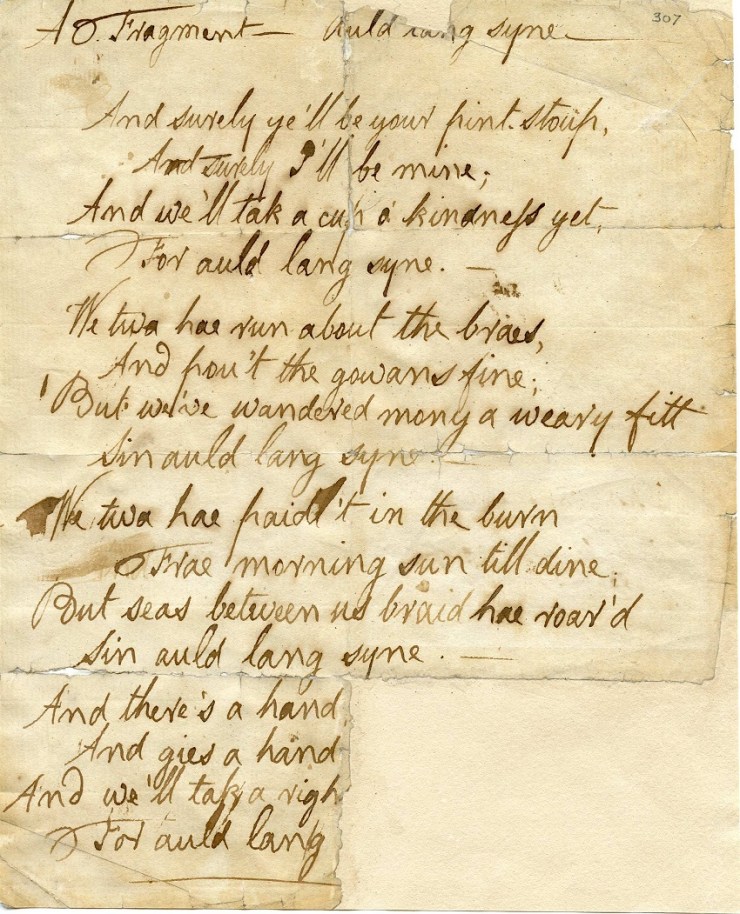 307
A Fragment — Auld lang syne —
And surely ye'll be your pint-stoup,
And surely I'll be mine;
And we'll tak a cup o' kindneſs yet,
For auld lang syne. —
We twa hae run about the braes,
And pou't the gowans fine;
But we've wandered mony a weary fitt
Sin auld lang syne. —
We twa hae paidl't in the burn
Frae morning sun till dine;
But seas between us braid hae roar'd
Sin auld lang syne. —
And there's a hand
And gies a hand
And we'll tak a righ
For auld lang